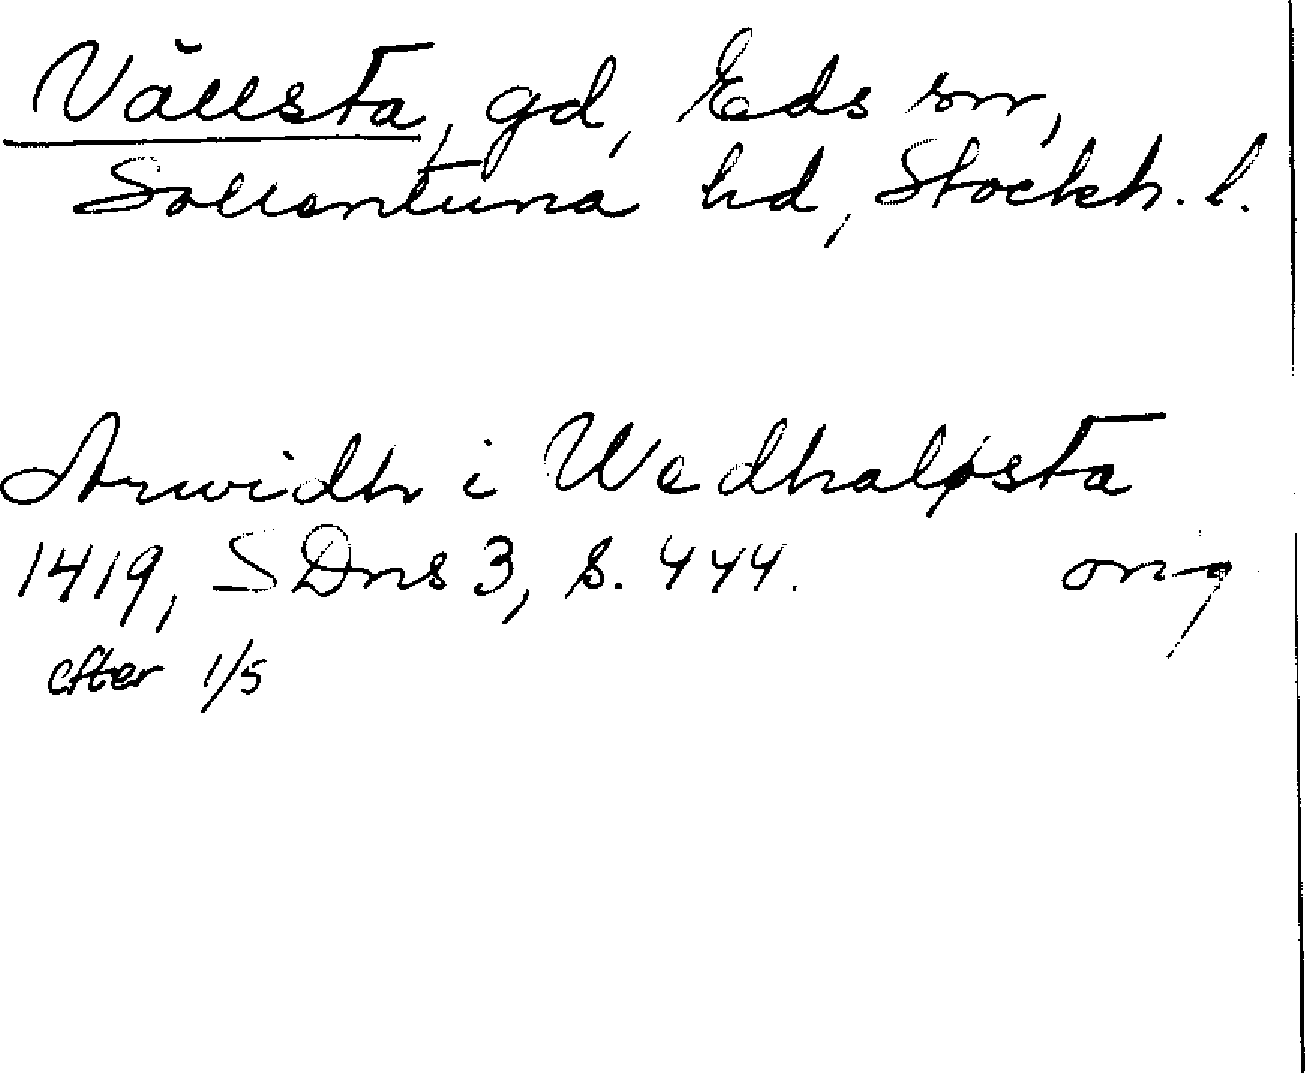 Vällsta, gd, Eds sn,
Sollentuna hd, Stockh. l.
Arwidh i Wedhalysta
1419, SDns 3, s. 444. orig
efter 1/5